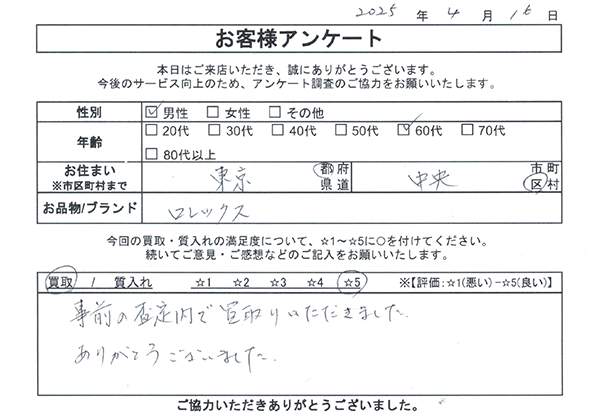 2025 年 4 月 16 日
お客様アンケート
本日はご来店いただき、誠にありがとうございます。
今後のサービス向上のため、アンケート調査のご協力をお願いいたします。
性別 ☑男性 □女性 □その他
年齢 □20代 □30代 □40代 □50代 ☑60代 □70代
□80代以上
お住まい 東京 都府 中央 市町
※市区町村まで 県道 区村
お品物/ブランド ロレックス
今回の買取・質入れの満足度について、☆1～☆5に○を付けてください。
続いてご意見・ご感想などのご記入をお願いいたします。
買取 / 質入れ ☆1 ☆2 ☆3 ☆4 ☆5 ※【評価:☆1(悪い)－☆5(良い)】
事前の査定内で買取りいただきました.
ありがとうございました.
ご協力いただきありがとうございました。